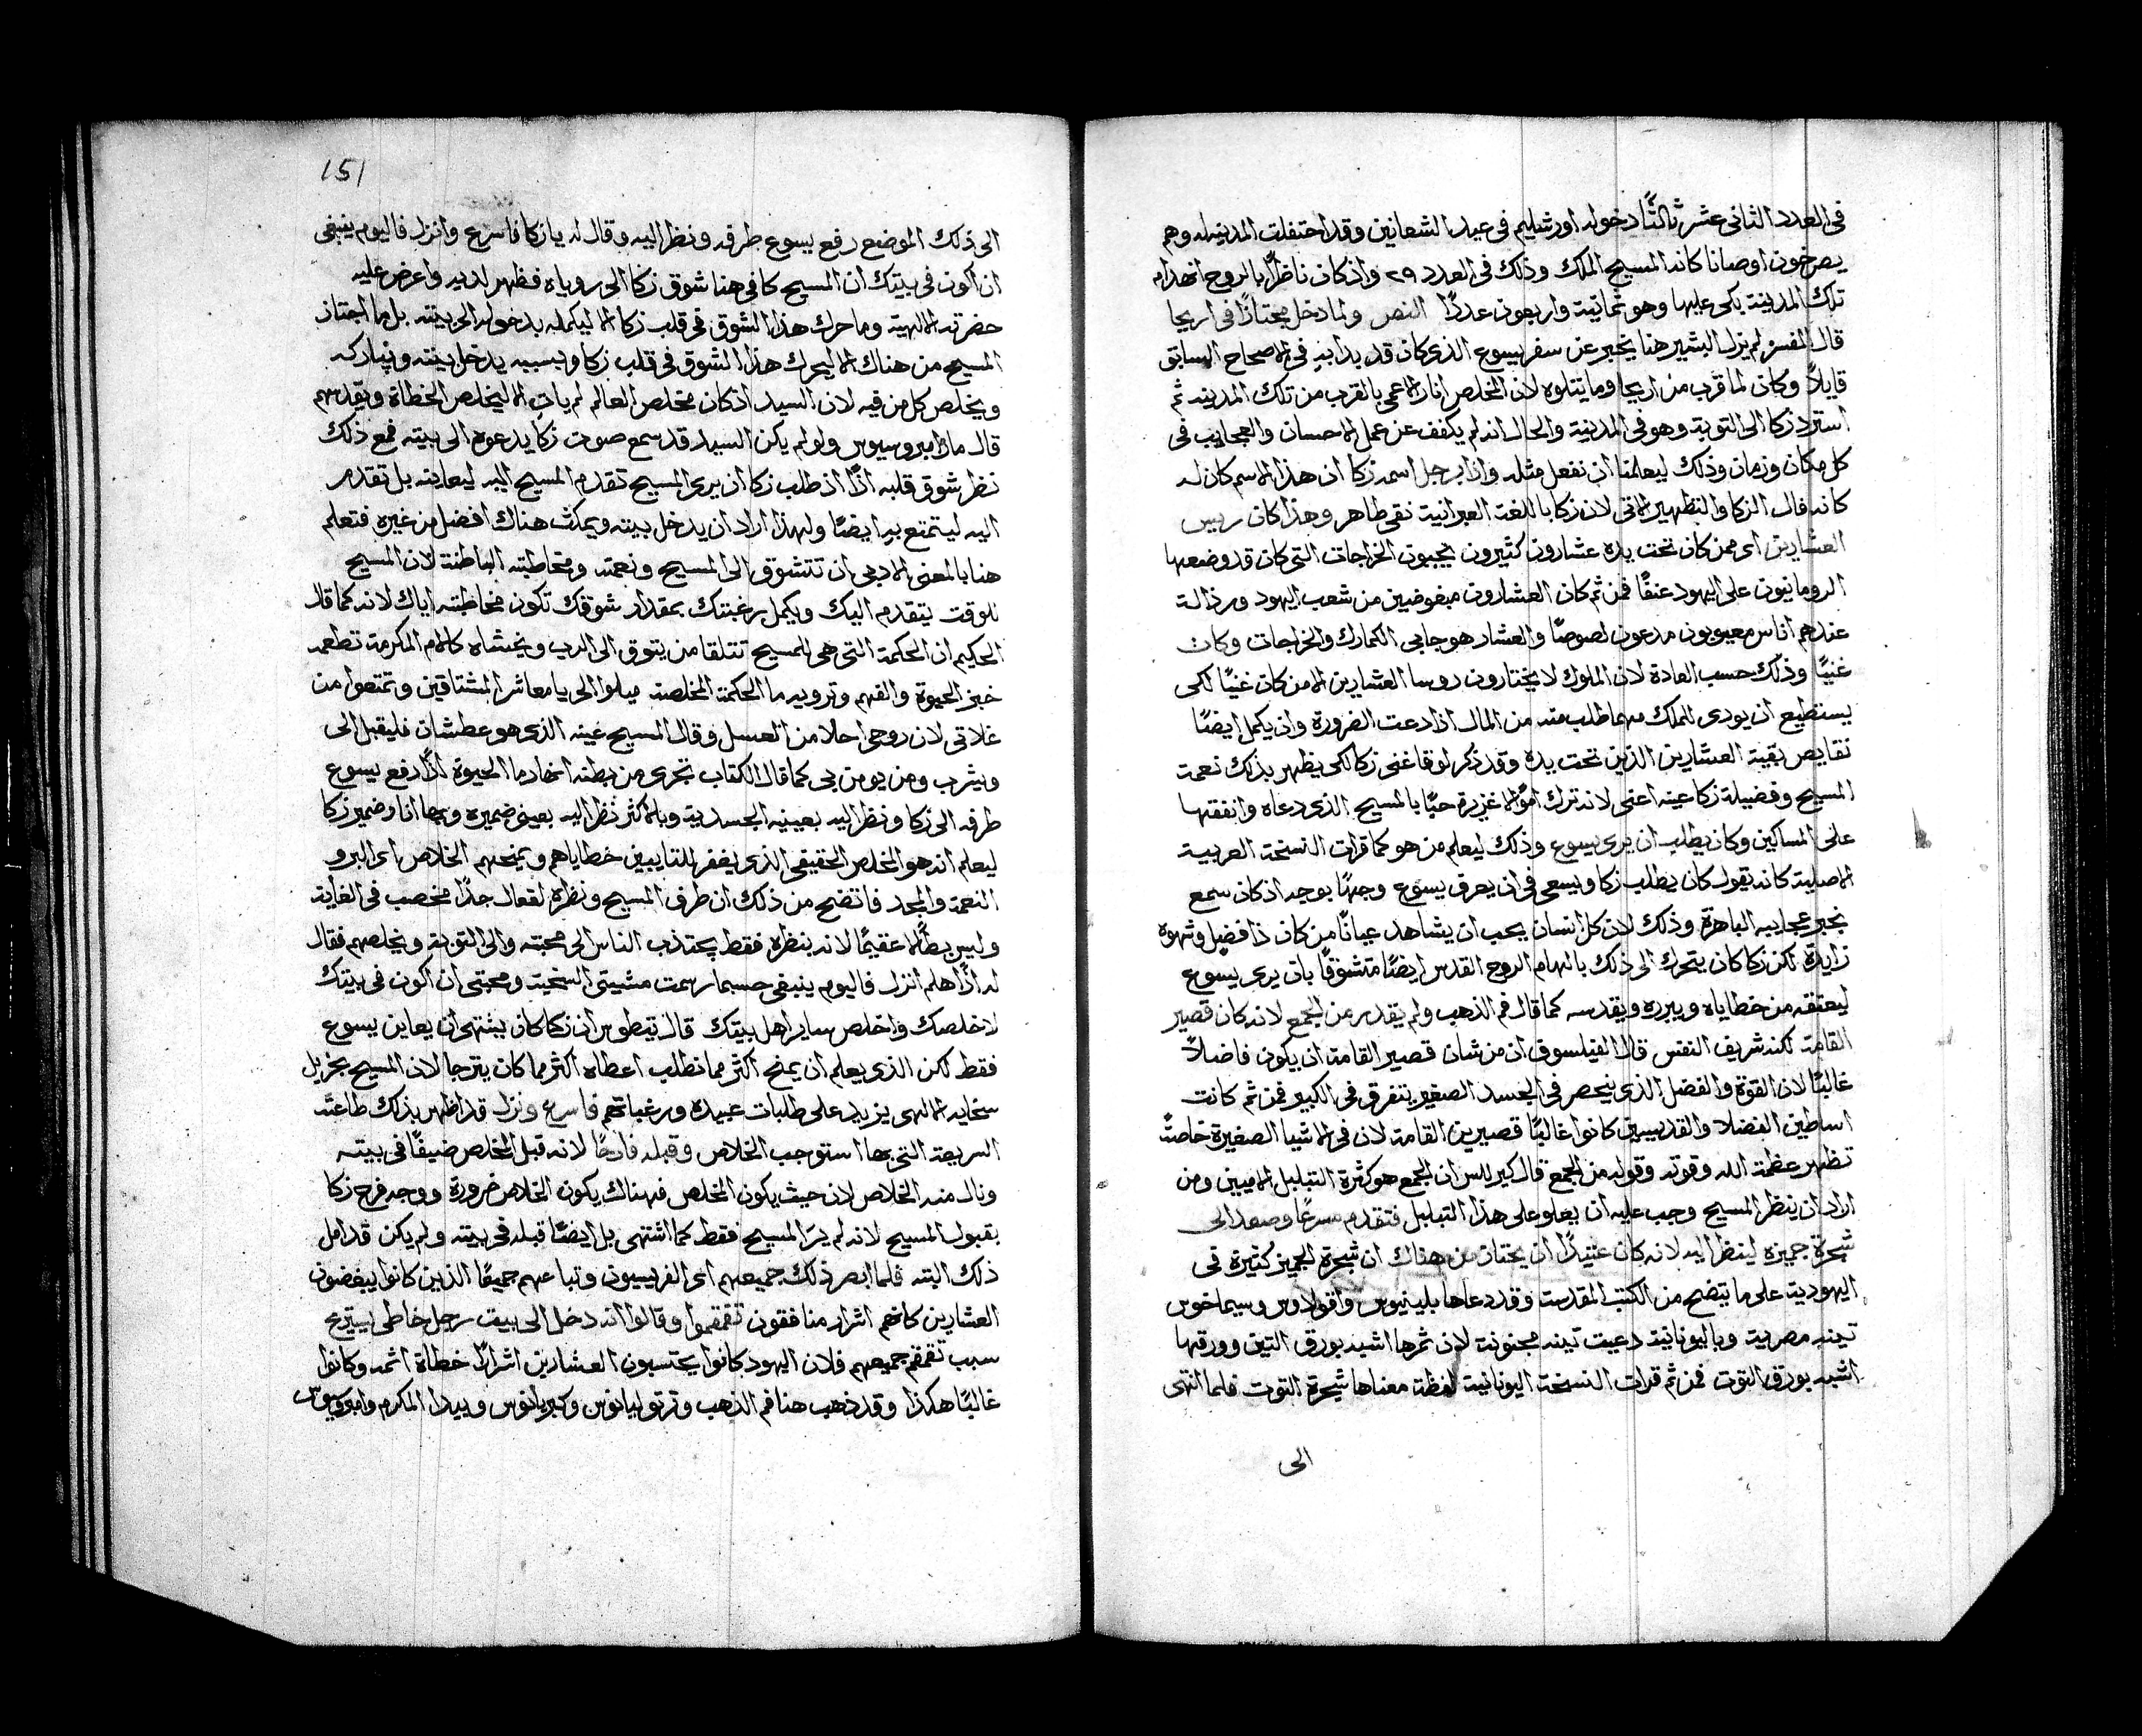 في العدد الثاني عشر ثالثًا دخوله اورشليم في عيد الشعانين وقد احتفلت المدينه له وهم
يصرخون اوصانا كانه المسيح الملك وذلك في العدد ٢٩ واذ كان ناظرًا بالروح انهدام
تلك المدينة بكى عليها وهو ثمانية واربعون عددًا النص ولما دخل مجتازًا في اريحا
قال المفسر لم يزل البشير هنا يخبر عن سفر يسوع الذي كان قد بدا به في الاصحاح السابق
قايلاً وكان لما قرب من اريحا وما يتلوه لان المخلص انار الاعمى بالقرب من تلك المدينه ثم
استرد زكا الى التوبة وهو في المدينة والحال انه لم يكفف عن عمل الاحسان والعجايب في
كل مكان وزمان وذلك ليعلمنا ان نفعل مثله واذا برجل اسمه زكا ان هذا الاسم كان له
كانه فال الزكا والتطهير الاتي لان زكا باللغة العبرانية نقي طاهر وهذا كان رييس
العشارين اي ممن كان تحت يده عشارون كثيرون يجبون الخراجات التي كان قد وضعها
الرومانيون على اليهود عنفًا فمن ثم كان العشارون مبغوضين من شعب اليهود ومرذالة
عندهم اناس معيوبون مدعون لصوصًا والعشار هو جابي الكمارك والخراجات وكان
غنيًا وذلك حسب العادة لان الملوك لا يختارون روسا العشارين الا من كان غنيًا لكي
يستطيع ان يودي للملك مهما طلب منه من المال اذا دعت الضرورة وان يكمل ايضًا
نقايص بقية العشارين الذين تحت يده وقد ذكر لوقا غنى زكا لكي يظهر بذلك نعمة
المسيح وفضيلة زكا عينه اعني لانه ترك اموالا غزيرة حبًا بالمسيح الذي دعاه وانفقها
على المساكين وكان يطلب ان يرى يسوع وذلك ليعلم من هو كما قرات النسخة العربية
الاصلية كانه يقول كان يطلب زكا ويسعى في ان يعرف يسوع وجهًا بوجه اذ كان سمع
بخبر عجايبه الباهرة وذلك لان كل انسان يحب ان يشاهد عيانًا من كان ذا فضل وشهوة
زايدة لكن زكا كان يتحرك الى ذلك بالهام الروح القدس ايضًا متشوقًا بان يرى يسوع
ليعتقه من خطاياه ويبرره ويقدسه كما قال فم الذهب ولم يقدر من الجمع لانه كان قصير
القامة لكنه شريف النفس قال الفيلسوف ان من شان قصير القامة ان يكون فاضلاً
غالبًا لان القوة والفضل الذي ينحصر في الجسد الصغير يتفرق في الكبير فمن ثم كانت
اساطين الفضلا والقديسين كانوا غالبًا قصيرين القامة لان في الاشيا الصغيرة خاصةً
تظهر عظمة الله وقوته وقوله من الجمع قال كيرللس ان الجمع هو كثرة التبلبل الاميين ومن
اراد ان ينظر المسيح وجب عليه ان يعلو على هذا التبلبل فتقدم مسرعًا وصعد الى
شجرة جميزة لينظر اليه لانه كان عتيدًا ان يجتاز من هناك ان شجرة الجميز كثيرة في
اليهودية على ما يتضح من الكتب المقدسة وقد دعاها بلينيوس وسيماخوس
تينه مصرية وباليونانية دعيت تينه مجنونة لان ثمرها اشبه بورق التين وورقها
اشبه بورق التوت فمن ثم قرات النسخة اليونانية لفظة معناها شجرة التوت فلما انتهى
الى
151
الى ذلك الموضع رفع يسوع طرفه ونظر اليه وقال له يا زكا فاسرع وانزل فاليوم ينبغي
ان اكون في بيتك ان المسيح كافى هنا شوق زكا الى روياه فظهر لديه واعرض عليه
حضرته الالهية وما حرك هذا الشوق في قلب زكا الا ليكمله بدخوله الى بيته بل ما اجتاز
المسيح من هناك الا ليحرك هذا الشوق في قلب زكا وبسببه يدخل بيته ويباركه
ويخلص كل من فيه لان السيد اذ كان مخلص العالم لم يات الا ليخلص الخطاة ويقدسهم
قال مار امبروسيوس ولو لم يكن السيد قد سمع صوت زكا يدعوه الى بيته فمع ذلك
نظر شوق قلبه اذًا اذ طلب زكا ان يرى المسيح تقدم المسيح اليه ليعاينه بل تقدم
اليه ليتمتع به ايضًا ولهذا اراد ان يدخل بيته ويمكث هناك افضل من غيره فتعلم
هنا بالمعنى الادبي ان تتشوق الى المسيح ونعمته ومخاطبته الباطنة لان المسيح
للوقت يتقدم اليك ويكمل رغبتك بمقدار شوقك تكون مخاطبته اياك لانه كما قال
الحكيم ان الحكمة التي هي المسيح تتلقا من يتوق الى الرب ويخشاه كالام المكرمة تطعمه
خبز الحيوة والفهم وترويه ما الحكمة المخلصة ميلوا الي يا معاشر المشتاقين وتمتعوا من
غلاتي لان روحي احلا من العسل وقال المسيح عينه الذي هو عطشان فليقبل الي
ويشرب ومن يومن بي كما قال الكتاب تجري من بطنه انهار ما الحيوة اذًا رفع يسوع
طرفه الى زكا ونظر اليه بعينيه الجسدية وبالاكثر نظر اليه بعيني ضميره وبها انار ضمير زكا
ليعلم انه هو المخلص الحقيقي الذي يغفر للتايبين خطاياهم ويمنحهم الخلاص اي البر و
النعمة والمجد فاتضح من ذلك ان طرف المسيح ونظره لفعال جدًا مخصب في الغاية
وليس بطالا عقيمًا لانه بنظره فقط يجتذب الناس الى محبته والى التوبة ويخلصهم فقال
له اذًا هلم انزل فاليوم ينبغي حسبما رسمت مشيتي السخية ومحبتي ان اكون في بيتك
لاخلصك واخلص ساير اهل بيتك قال تيطوس ان زكا كان يشتهي ان يعاين يسوع
فقط لكن الذي يعلم ان يمنح اكثر مما نطلب اعطاه اكثر مما كان يترجا لان المسيح بجزيل
سخايه الالهي يزيد على طلبات عبيده ورغباتهم فاسرع ونزل قد اظهر بذلك طاعته
السريعة التي بها استوجب الخلاص وقبله فارحًا لانه قبل المخلص ضيفًا في بيته
ونال منه الخلاص لان حيث يكون المخلص فهناك يكون الخلاص ضرورة ووجه فرح زكا
بقبول المسيح لانه لم يرَ المسيح فقط كما اشتهى بل ايضًا قبله في بيته ولم يكن قد امل
ذلك البته فلما ابصر ذلك جميعهم اي الفريسيون وتباعهم جميعًا الذين كانوا يبغضون
العشارين كانهم اشرار منافقون تقمقموا وقالوا انه دخل الى بيت رجل خاطي يستريح
سبب تقمقم جميعهم فلان اليهود كانوا يحتسبون العشارين اشرارًا خطاة اثمه وكانوا
غالبًا هكذا وقد ذهب هنا فم الذهب وترتوليانوس وكبريانوس وبيدا المكرم وامبروسيوس